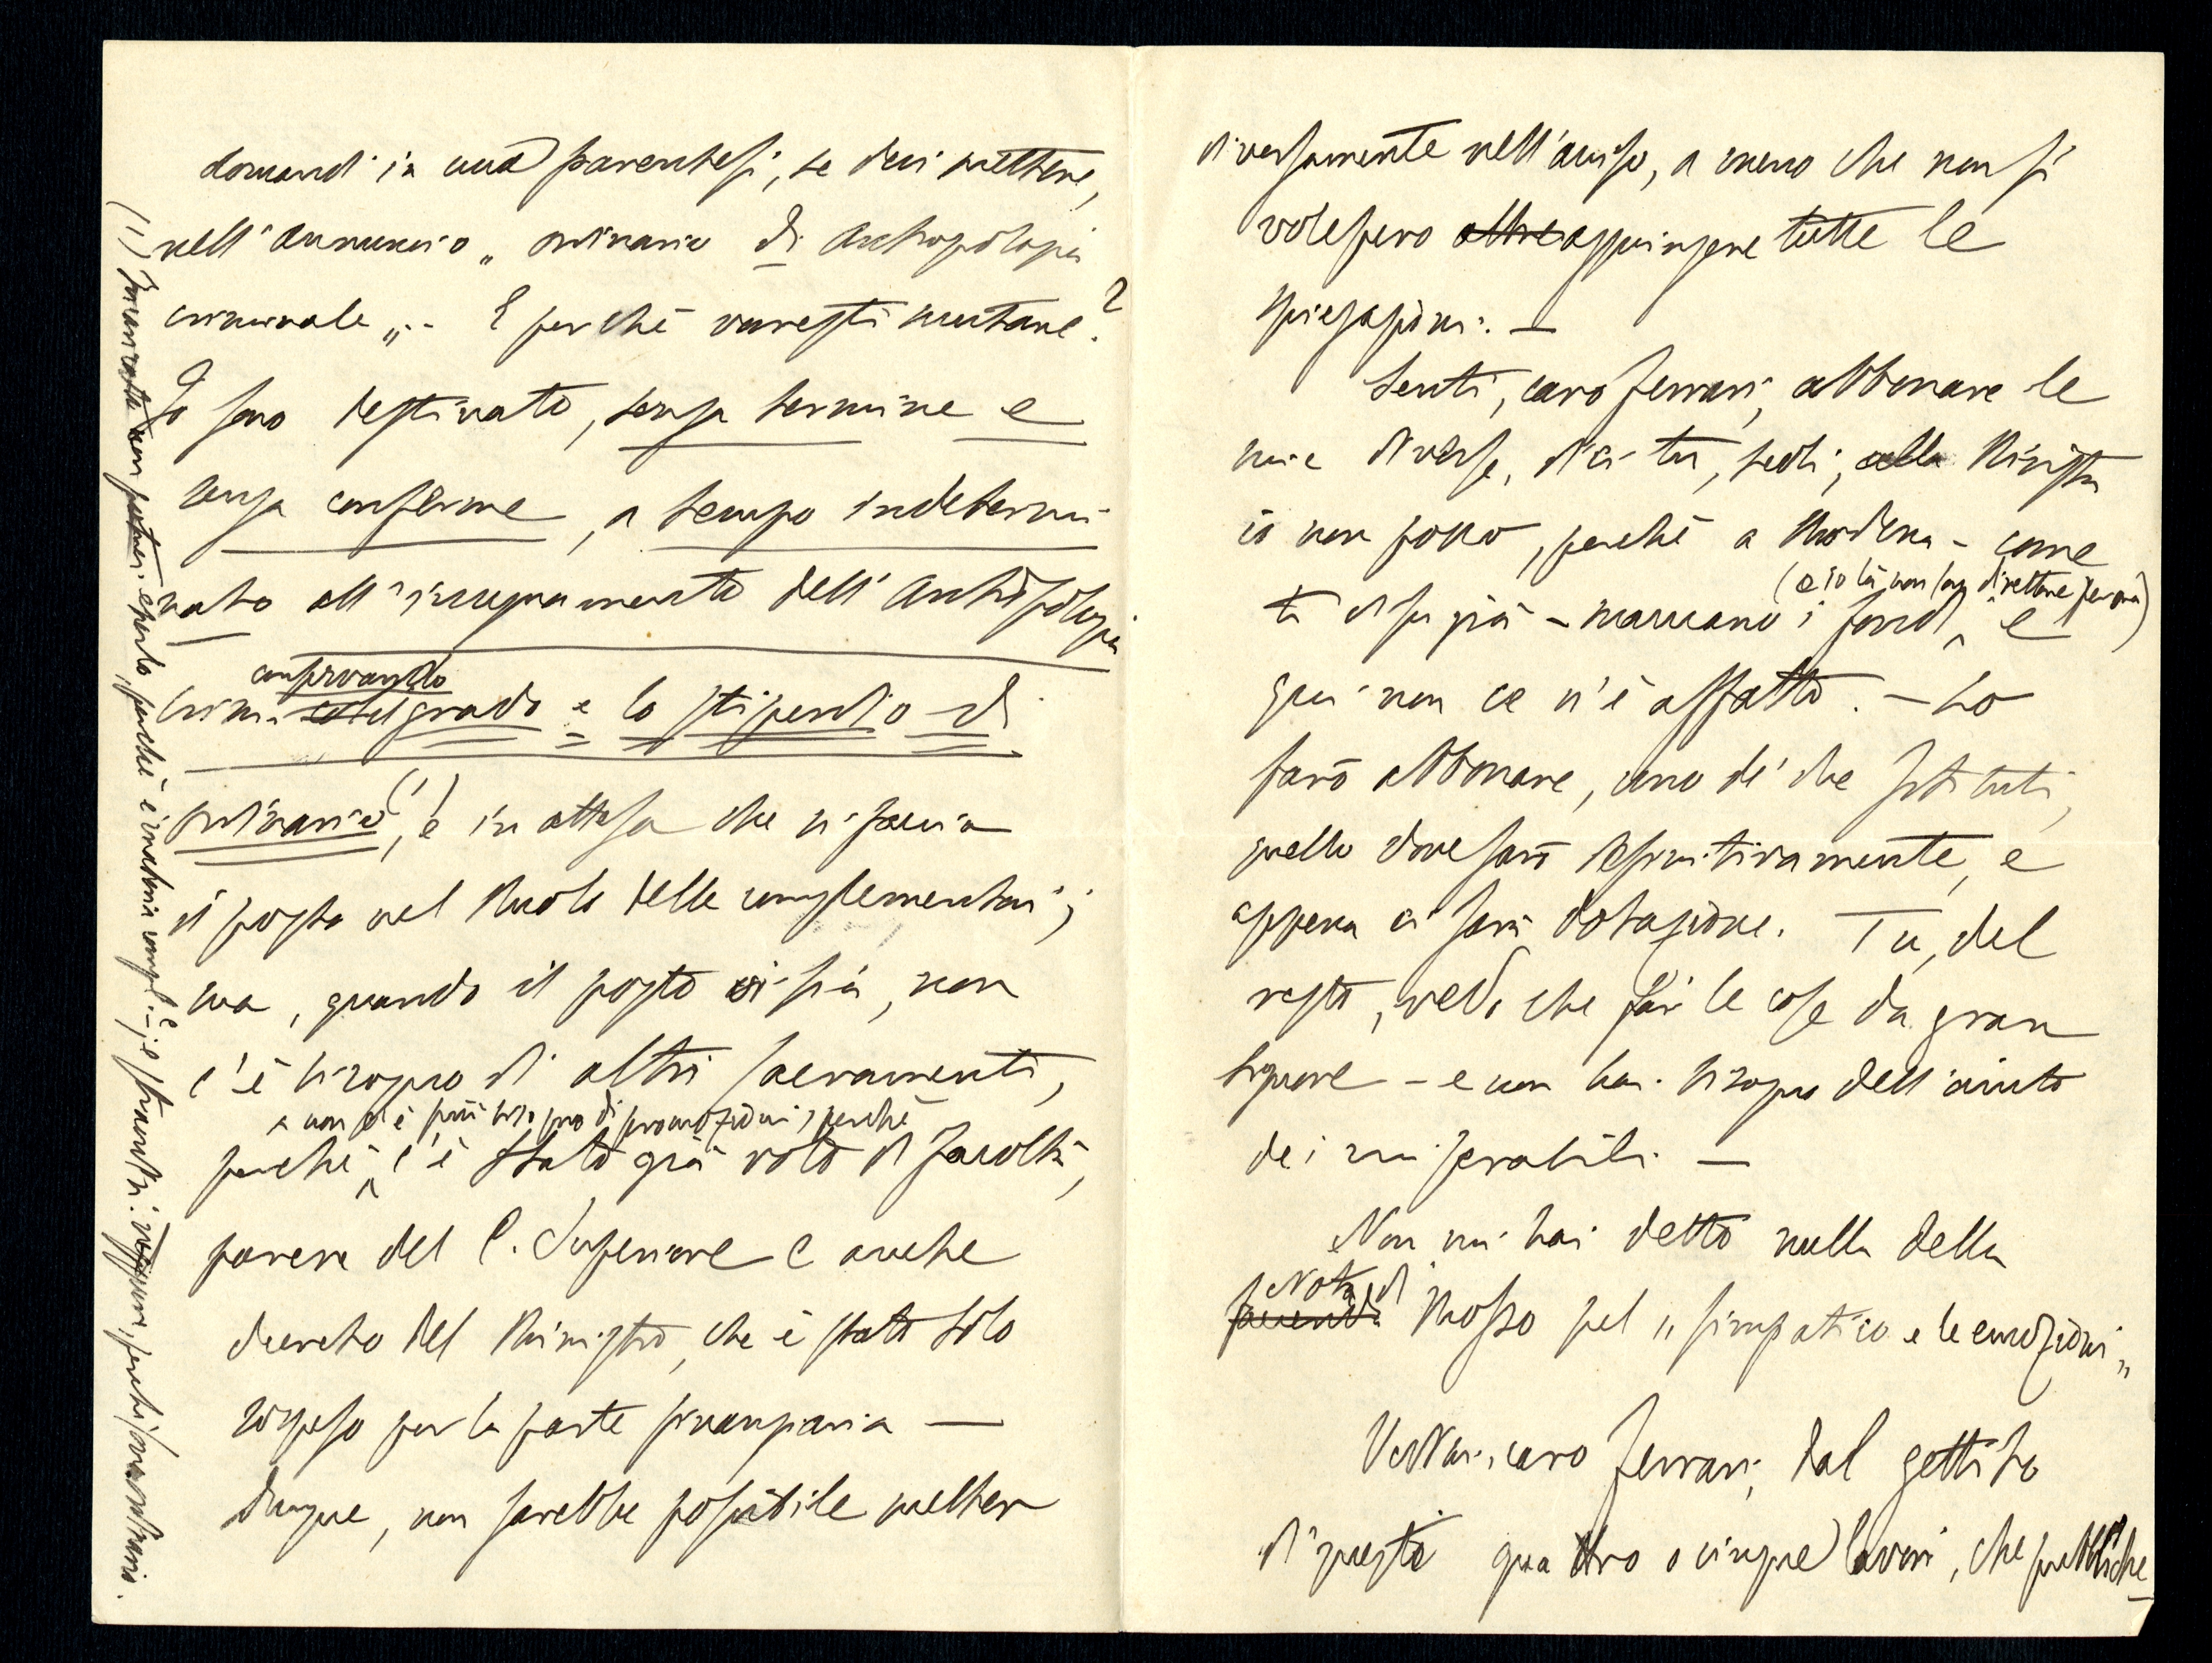 domandi in una parentesi, se devi mettere,
nell'annuncio „ ordinario di Antropologia
criminale „. - E perchè vuoresti mutare?
Io sono destinato, senza termine e
senza conferme, a tempo indetermi-
nato all'insegnamento dell'Antropologia
crim. conservando
grado e lo stipendio di
ordinario (1), è in attesa che si faccia
il posto nel Ruolo delle complementari;
ma, quando il posto ci sia, non
c'è bisogno di altri sacramenti,
e non c'è più bisogno di promozioni, perchè
perchè c'è stato già voto di Facoltà,
parere del C. Superiore e anche
decreto del Ministro, che è stato solo
sospeso per la parte finanziaria —
dunque, non sarebbe possibile metter
(1) Incaricato non potrei esserlo, perchè è materia compl. - e straord. neppure, perchè sono ordinario.
diversamente nell'avviso, a meno che non si
volessero altre aggiungere tutte le
spiegazioni. —
Senti, caro Ferrari, abbonare le
mie diverse, dici tu, sedi, alla Rivista
io non posso, perchè a Modena - come
(e io là non son direttore per ora)
ti dissi già - mancano i fondi, e
qui non ce n'è affatto. - Lo
farò abbonare, uno de' due Istituti,
quello dove sarò definitivamente, e
appena ci sarà dotazione. Tu, del
resto, vedi che fai le cose da gran
signore - e non hai bisogno dell'aiuto
dei miserabili —
Non mi hai detto nulla della
Nota di
Mosso pel „ simpatico e le emozioni „
Vedrai, caro Ferrari, dal gettito
di questi quattro o cinque lavori, che pubbliche-